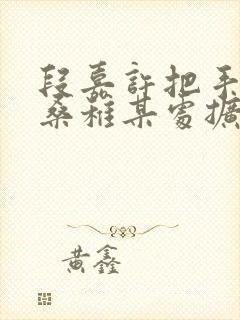 段嘉許把手
桑稚某處擴
黃鑫